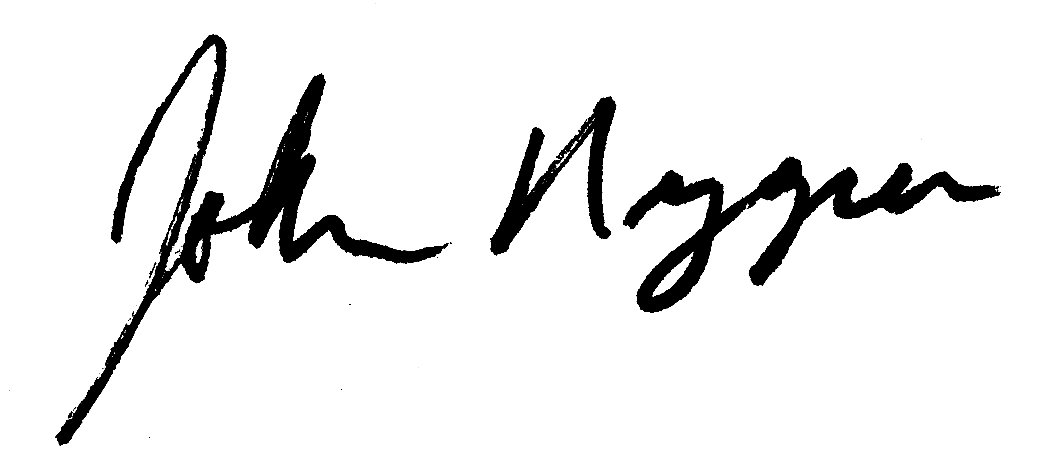 John Nygren